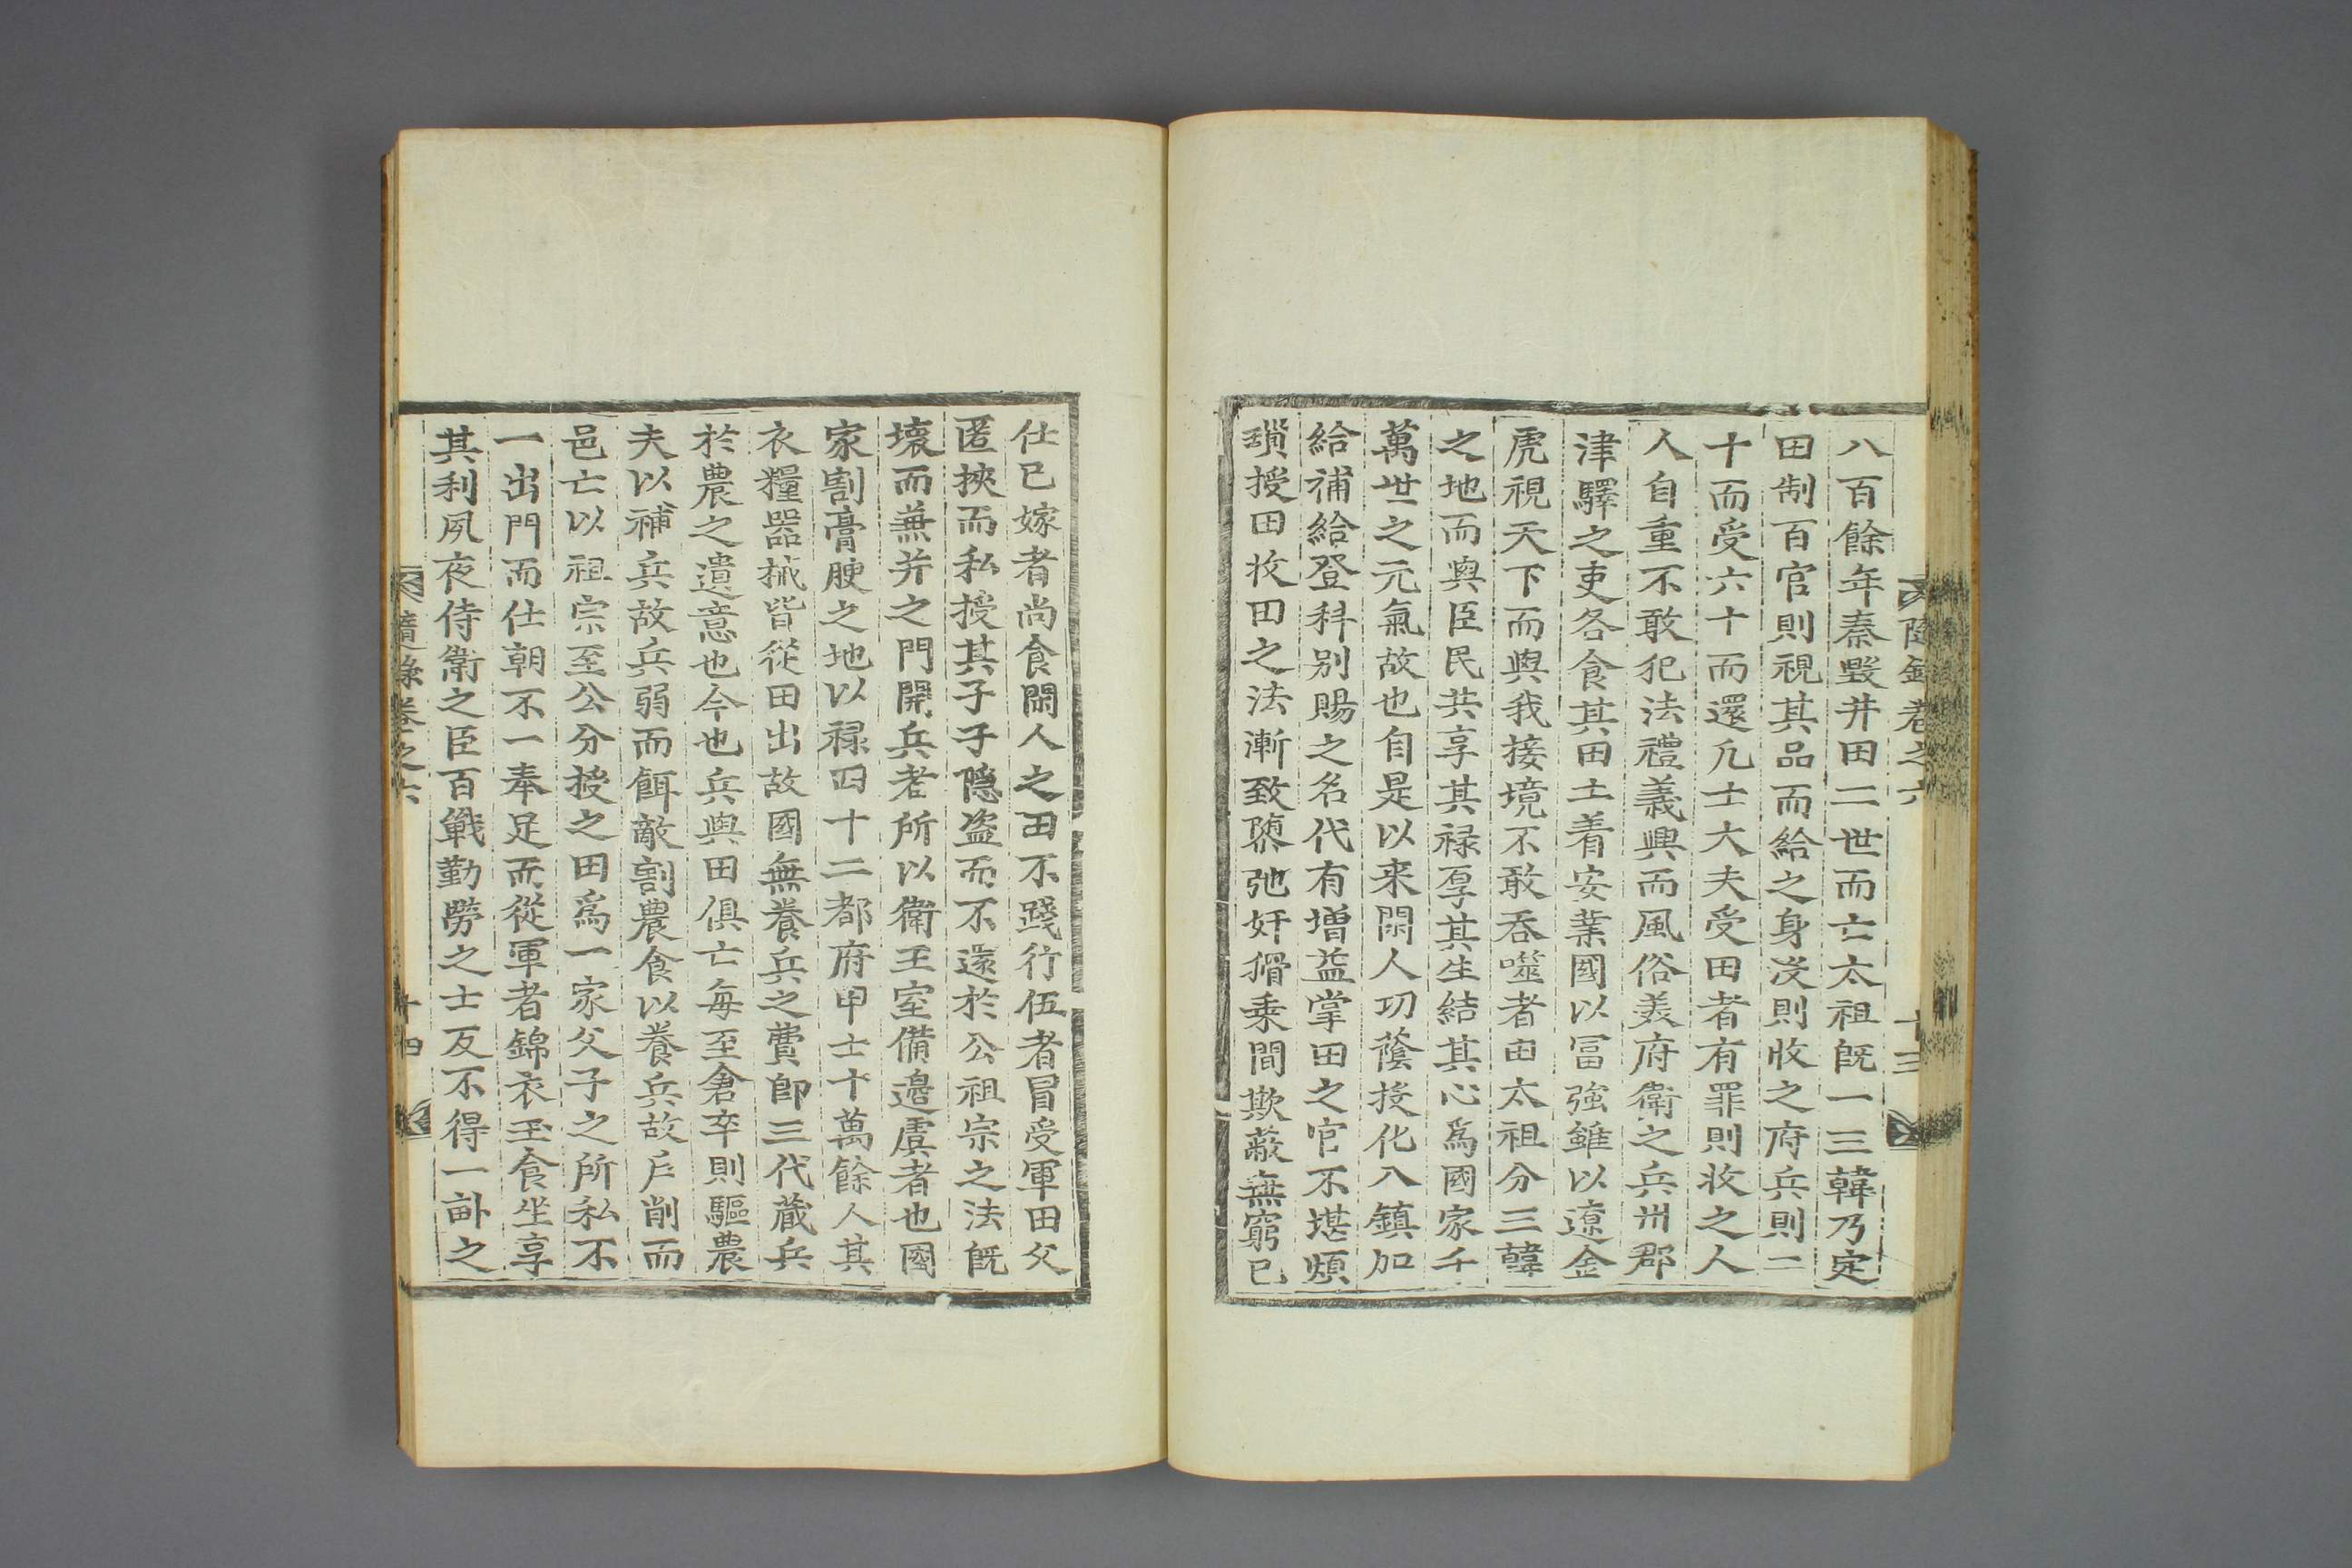 隨錄卷之六 十三
八百餘年秦毀井田二世而亡太祖旣一三韓乃定
田制百官則視其品而給之身没則收之府兵則二
十而受六十而還凡士大夫受田者有罪則收之人
人自重不敢犯法禮義興而風俗美府衛之兵州郡
津驛之吏各食其田土着安業國以冨強雖以遼金
虎視天下而與我接境不敢呑噬者由太祖分三韓
之地而與臣民共享其禄厚其生結其心爲國家千
萬世之元氣故也自是以来閑人功蔭投化入鎮加
給補給登科别賜之名代有增益掌田之官不堪煩
瑣授田收田之法漸致隳弛奸猾乗間欺蔽無窮已
仕已嫁者尚食閑人之田不踐行伍者冒受軍田父
匿挾而私授其子子隱盗而不還於公祖宗之法旣
壞而兼并之門開兵者所以衛王室備邊虞者也國
家割膏腴之地以禄四十二都府甲士十萬餘人其
衣糧器械皆從田出故國無養兵之費卽三代蔵兵
於農之遺意也今也兵與田俱亡每至倉卒則驅農
夫以補兵故兵弱而餌敵割農食以養兵故戶削而
邑亡以祖宗至公分授之田爲一家父子之所私不
一出門而仕朝不一奉足而從軍者錦衣玉食坐享
其利夙夜侍衛之臣百戰勤勞之士反不得一畝之
隨錄卷之六 十四